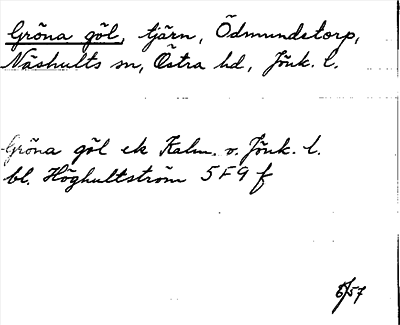 Gröna göl, tjärn, Ödmundetorp,
Näshults sn, Östra hd, Jönk. l.
Gröna göl ek Kalm. o. Jönk. l.
bl. Höghultström 5 F 9 f
5/57